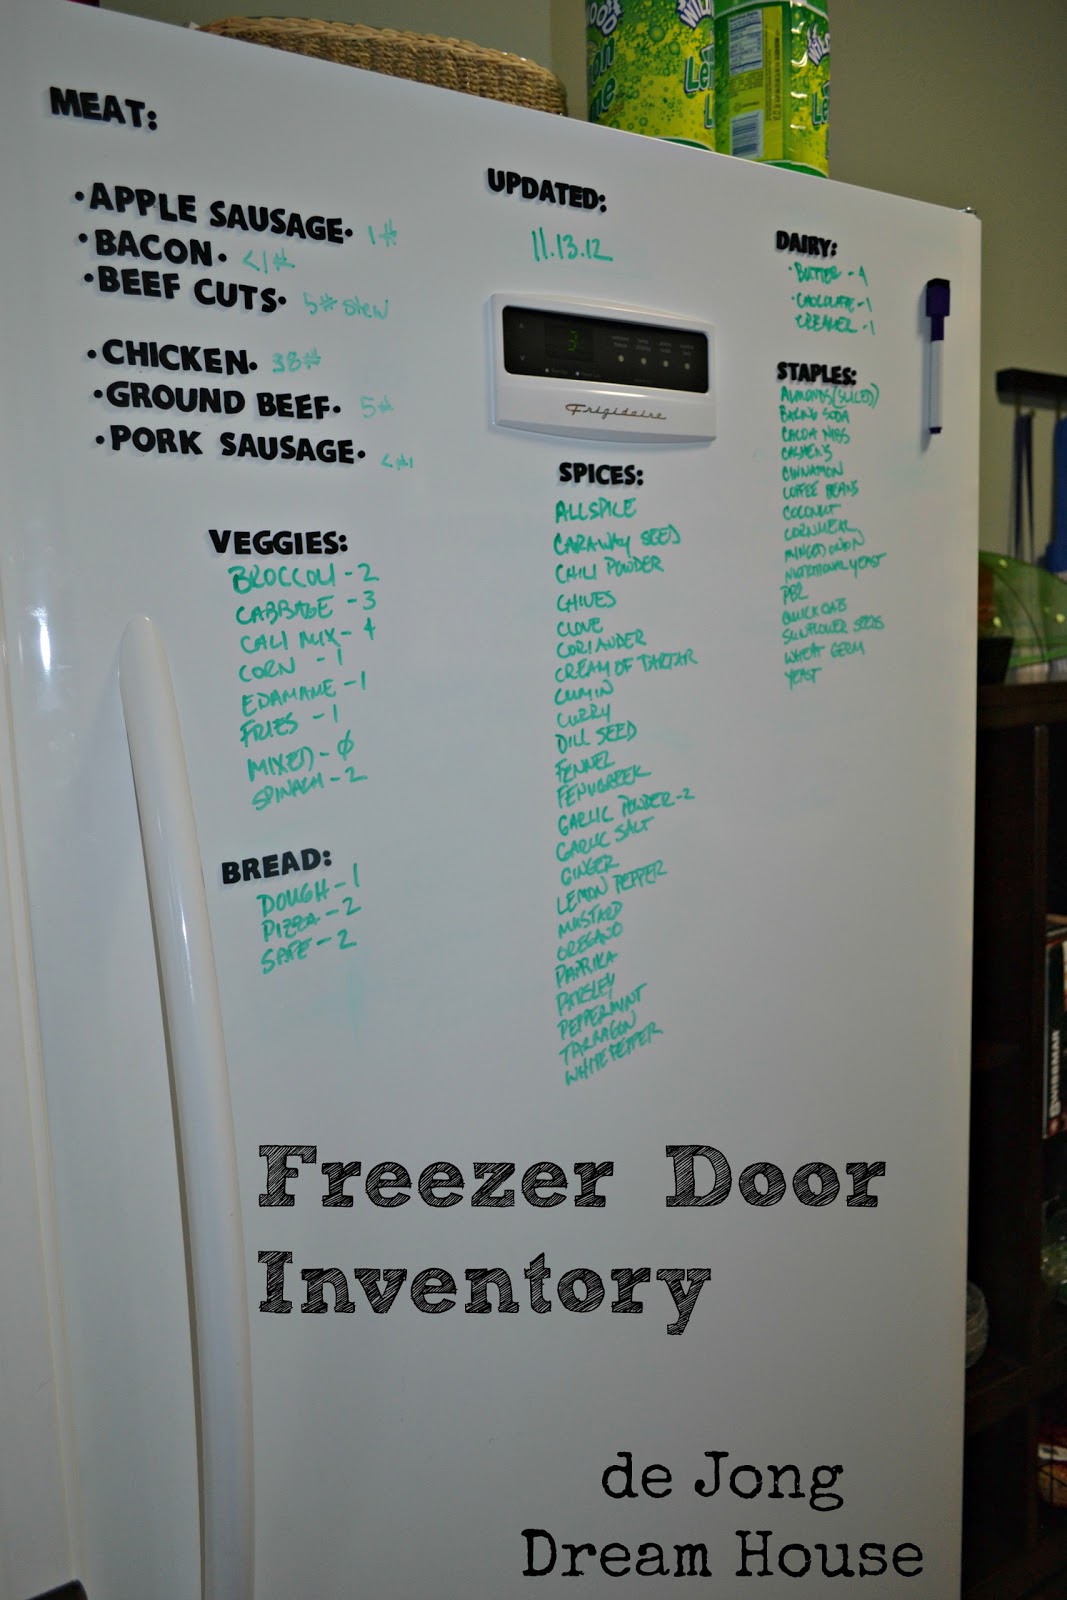 MEAT:
• APPLE SAUSAGE • 1#
• BACON • <1#
• BEEF CUTS • 5# stew
• CHICKEN • 38#
• GROUND BEEF • 5#
• PORK SAUSAGE • <1#
VEGGIES:
BROCCOLI - 2
CABBAGE - 3
CALI MIX - 4
CORN - 1
EDAMAME - 1
FRIES - 1
MIXED - Ø
SPINACH - 2
BREAD:
DOUGH - 1
PIZZA - 2
- 2
UPDATED:
11.13.12
3
Frigidaire
SPICES:
ALLSPICE
CARAWAY SEED
CHILI POWDER
CHIVES
CLOVE
CORIANDER
CREAM OF TARTAR
CUMIN
CURRY
DILL SEED
FENNEL
FENUGREEK
GARLIC POWDER - 2
GARLIC SALT
GINGER
LEMON PEPPER
MUSTARD
OREGANO
PAPRIKA
PARSLEY
PEPPERMINT
TARRAGON
WHITE PEPPER
DAIRY:
• BUTTER - 4
• CHOCOLATE - 1
CREAMER - 1
STAPLES:
ALMONDS (SLICED)
BAKING SODA
CACOA NIBS
CASHEWS
CINNAMON
COFFEE BEANS
COCONUT
CORNMEAL
MINCED ONION
NUTRITIONAL YEAST
PB2
QUICK OATS
SUNFLOWER SEEDS
WHEAT GERM
YEAST
SWISSMAR
Freezer Door
Inventory
de Jong
Dream House